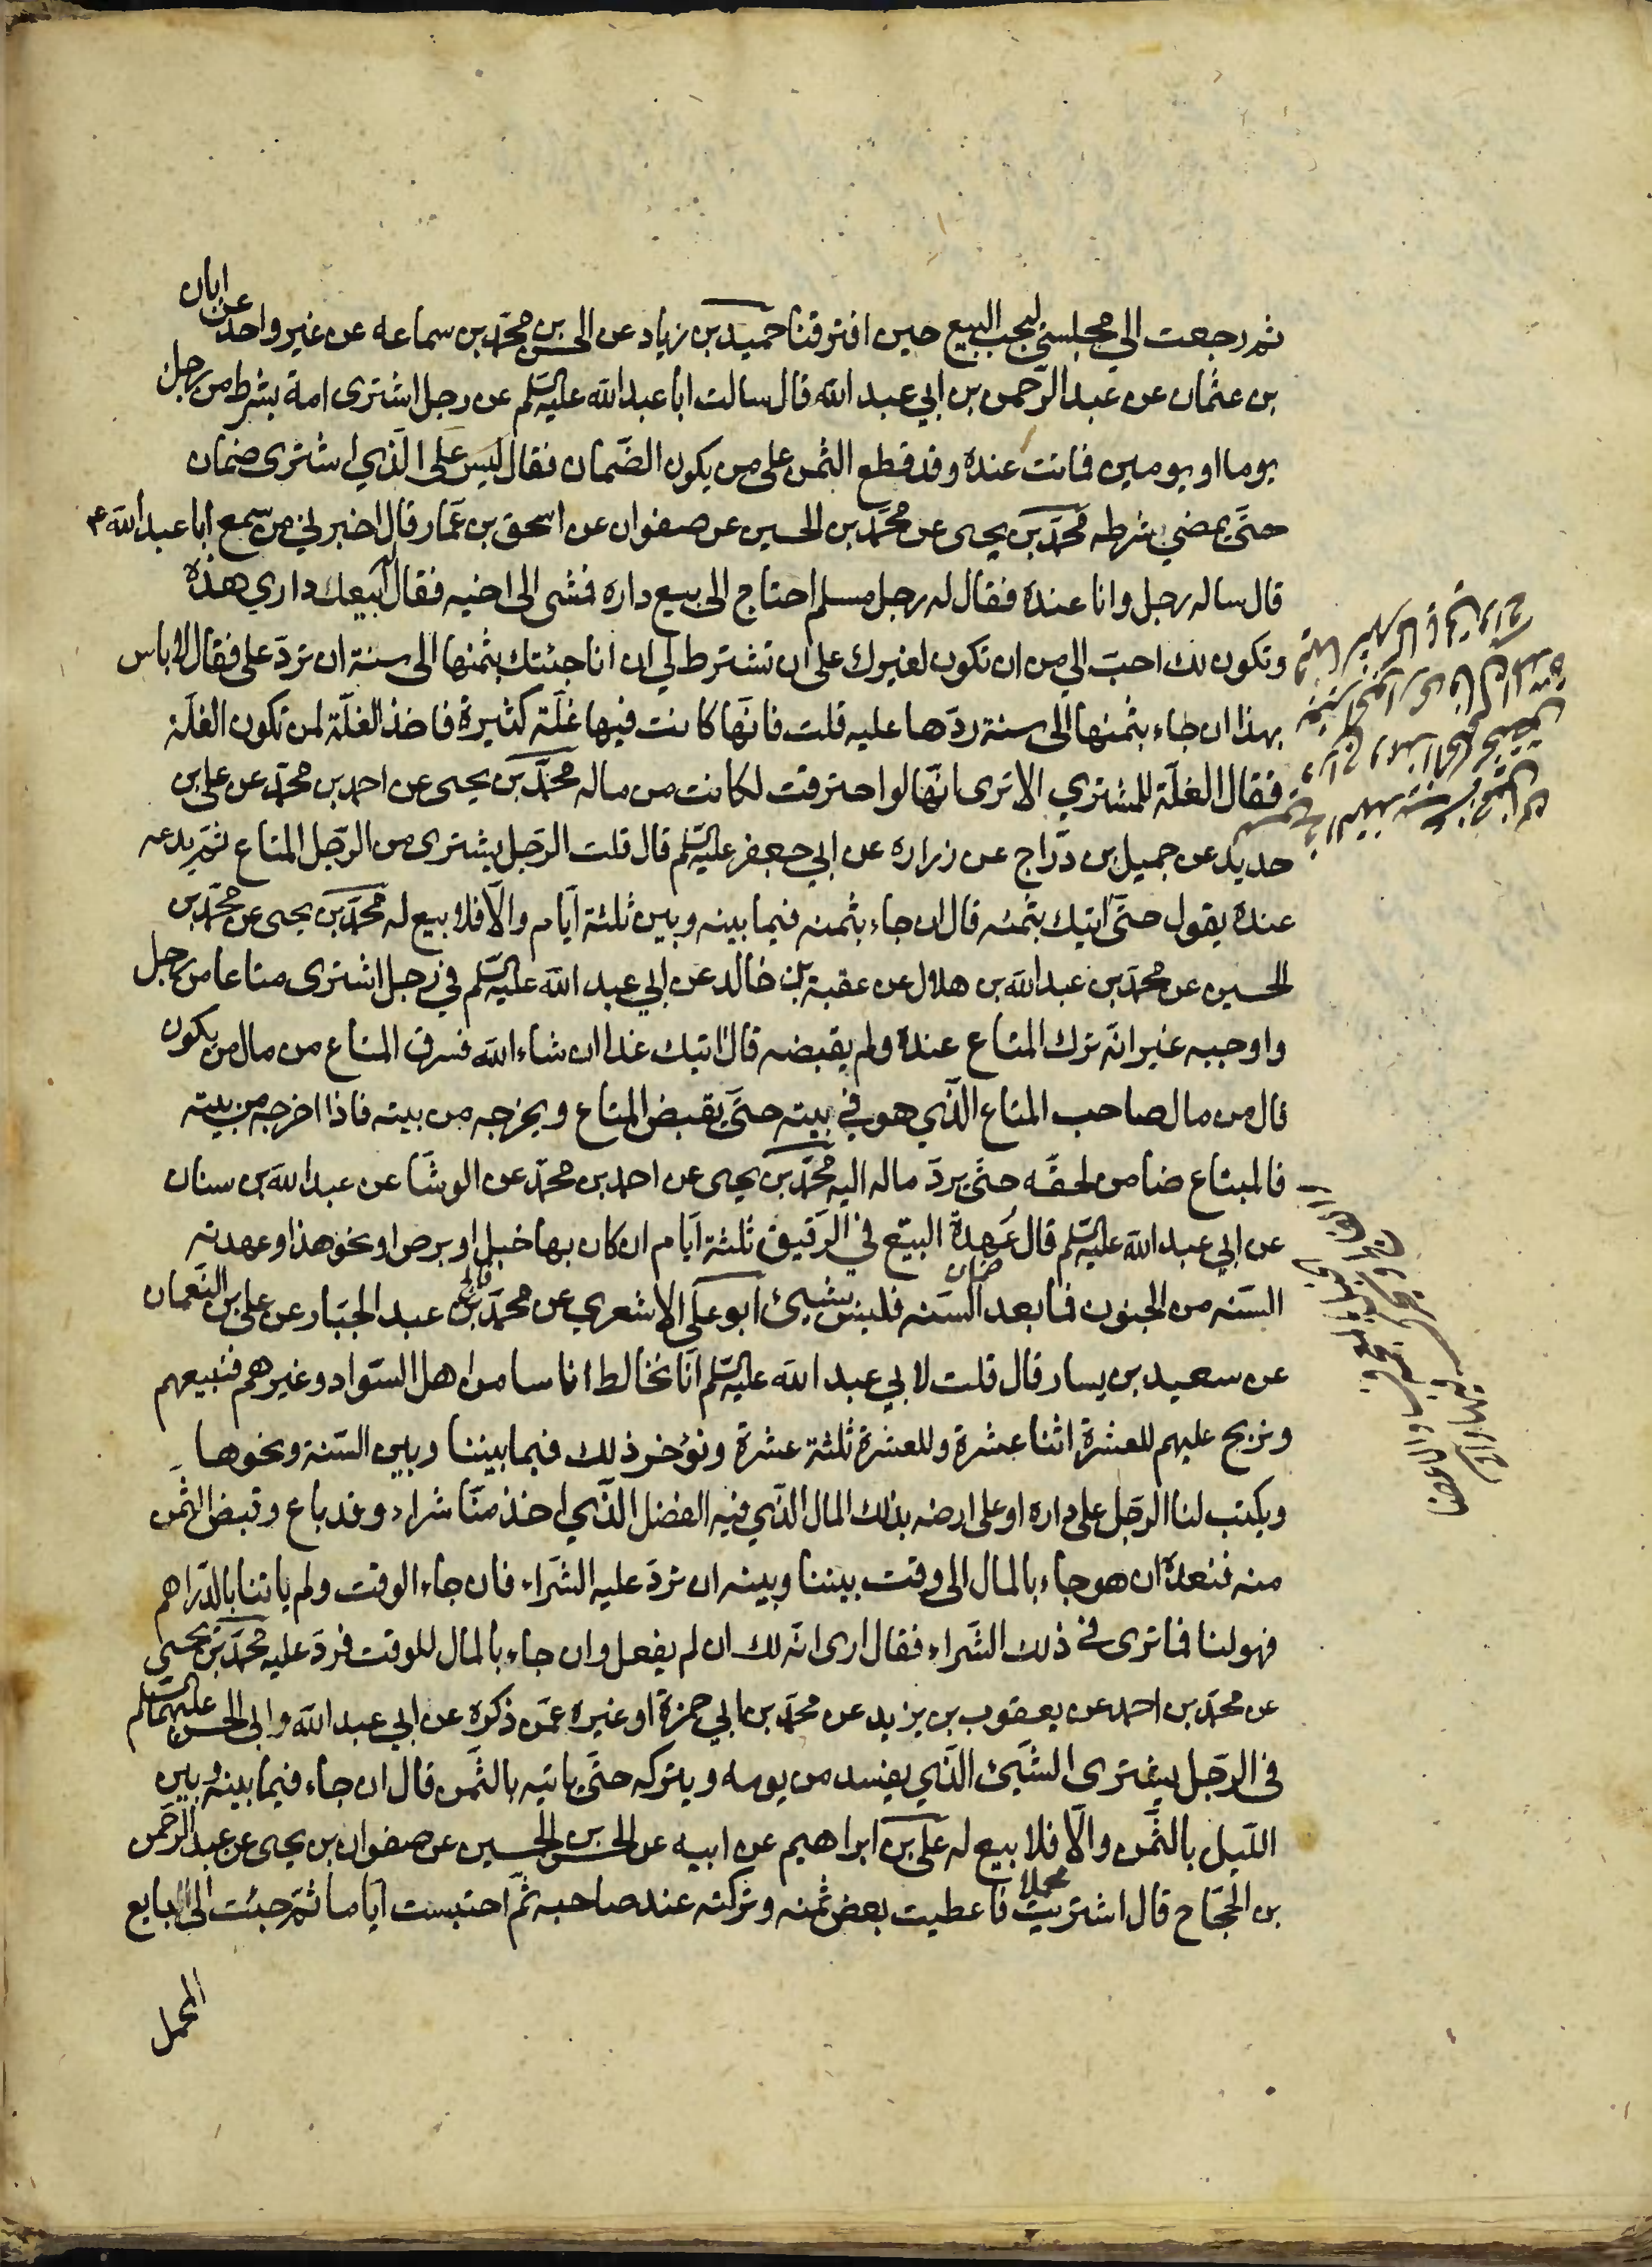 ثم رجعت الي مجلسي ليجب البيع حين افترقنا حميد بن زياد عن الحسن بن محمّد بن سماعه عن غير واحد عن ابان
بن عثمان عن عبد الرّحمن بن ابي عبد الله قال سالت ابا عبد الله عليه السّلم عن رجل اشترى امة بشرط من رجل
يوما او يومين فماتت عنده وقد قطع الثمن على من يكون الضّمان فقال ليس على الّذي اشترى ضمان
حتّى يمضي بشرطه محمّد بن يحيى عن محمّد بن الحسين عن صفوان عن اسحق بن عمّار قال اخبرني من سمع ابا عبد الله ع
قال ساله رجل وانا عنده فقال له رجل مسلم احتاج الى بيع داره فمشى الى اخيه فقال له ابيعك داري هذه
وتكون لك احبّ الي من ان تكون لغيرك على ان تشترط لي ان انا جئتك بثمنها الى سنة ان تردّ على فقال لا باس
بهذا ان جاء بثمنها الى سنة ردّها عليه قلت فانّها كانت فيها غلّة كثيرة فاخذ الغلّة لمن تكون الغلّة
فقال الغلّة للمشتري الا ترى انّها لو احترقت لكانت من ماله محمّد بن يحيى عن احمد بن محمّد عن على بن
حديد عن جميل بن درّاج عن زراره عن ابي جعفر عليه السّلم قال قلت الرّجل يشترى من الرّجل المتاع ثمّ يدعه
عنده يقول حتّى اتيك بثمنه قال ان جاء بثمنه فيما بينه وبين ثلثة ايّام والّا فلا بيع له محمّد بن يحيى عن محمّد بن
الحسين عن محمّد بن عبد الله بن هلال عن عقبة بن خالد عن ابي عبد الله عليه السّلم في رجل اشترى متاعا من رجل
واوجبه غير انّه ترك المتاع عنده ولم يقبضه قال اتيك غدا ان شاء الله فسرق المتاع من مال من يكون
قال من مال صاحب المتاع الّذي هو في بيته حتّى يقبض المتاع ويخرجه من بيته فاذا اخرجه من بيته
فالمبتاع ضامن لحقّه حتّى يردّ ماله اليه محمّد بن يحيى عن احمد بن محمّد عن الوشّا عن عبد الله بن سنان
عن ابي عبد الله عليه السّلم قال عهدة البيّع في الرّقيق ثلثة ايّام ان كان بها خبل او برص او نحو هذا وعهدته
السّنه من الجنون فما بعد السّنه فليس بشيئ ابو على الاشعري عن محمّد بن عبد الجبّار عن على بن النّعمان
عن سعيد بن يسار قال قلت لابي عبد الله عليه السّلم انّا نخالط اناسا من اهل السّواد وغيرهم فنبيعهم
ونربح عليهم للعشرة اثنا عشرة وللعشرة ثلثة عشرة ونؤخر ذلك فيما بيننا وبين السّنة ونحوها
ويكتب لنا الرّجل على داره او على ارضه بذلك المال الّذي فيه الفضل الّذي اخذ منّا شراء وقد باع وقبض الثّمن
منه فنعده ان هو جاء بالمال الى وقت بيننا وبينه ان نردّ عليه الشّراء فان جاء الوقت ولم ياتنا بالدّراهم
فهو لنا فما ترى في ذلك الشّراء فقال ارى انّه لك ان لم يفعل وان جاء بالمال للوقت فردّ عليه محمّد بن يحيى
عن محمّد بن احمد عن يعقوب بن يزيد عن محمّد بن ابي حمزة او غيره عمّن ذكره عن ابي عبد الله وابي الحسن عليهما السلم
في الرّجل يشترى الشّيئ الّذي يفسد من يومه ويتركه حتّى ياتيه بالثّمن قال ان جاء فيما بينه وبين
اللّيل بالثّمن والّا فلا بيع له على بن ابراهيم عن ابيه عن الحسن بن الحسين عن صفوان بن يحيى عن عبد الرّحمن
بن الحجّاج قال اشتريت محملا فاعطيت بعض ثمنه وتركته عند صاحبه ثمّ احتبست ايّاما ثمّ جئت الى البايع
المحمل